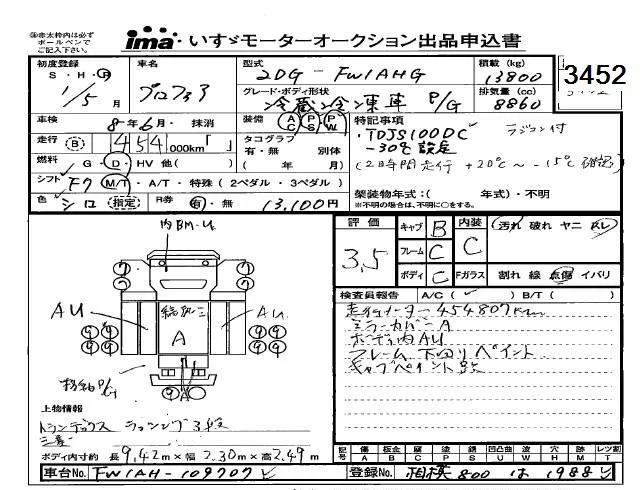 ㊟赤太枠内は必ず
ボールペンで
ご記入下さい。
ima・いすゞモーターオークション出品申込書
3452
初度登録 車名 型式 積載(kg)
S・H・R 2DG-FW1AHG 13800
1/5月 プロフィア グレード・ボディ形状 排気量(cc)
冷蔵冷凍車 P/G 8860
車検 8年6月・抹消 装備 AC PS PW 特記事項
走行 B 454,000km「 」 タコグラフ ・TDJS100DC ラジコン付
有・無 別体 -30℃設定
燃料 G・D・HV 他( ) ( 年 月) (2時間走行 +20℃~-15℃確認)
シフト F7 M/T・A/T・特殊(2ペダル・3ペダル) 架装物年式:( 年式)・不明
色 シロ 指定 R券 有・無 13,100円 ※不明の場合は、不明に○をする。
評価 キャブ B 内装 汚れ 破れ ヤニ スレ
3.5 フレーム C C
ボディ C Fガラス 割れ 線 点傷 イバリ
検査員報告 A/C( ✓ ) B/T( )
走行メーター454807km
ミラーカバーA
ボディ内AU
フレーム下回りペイント
キャブペイント跡
AU A AU
上物情報
トランテックス ラッシング3段
三菱
ボディ内寸約 長9.42m×幅2.30m×高2.49m
記号 傷 板金 腐 塗 錆 凹凸曲 穴 跡 レツ割
A B C P S U H M T
車台No. FW1AH-109707 登録No. 相模 800 は 1988